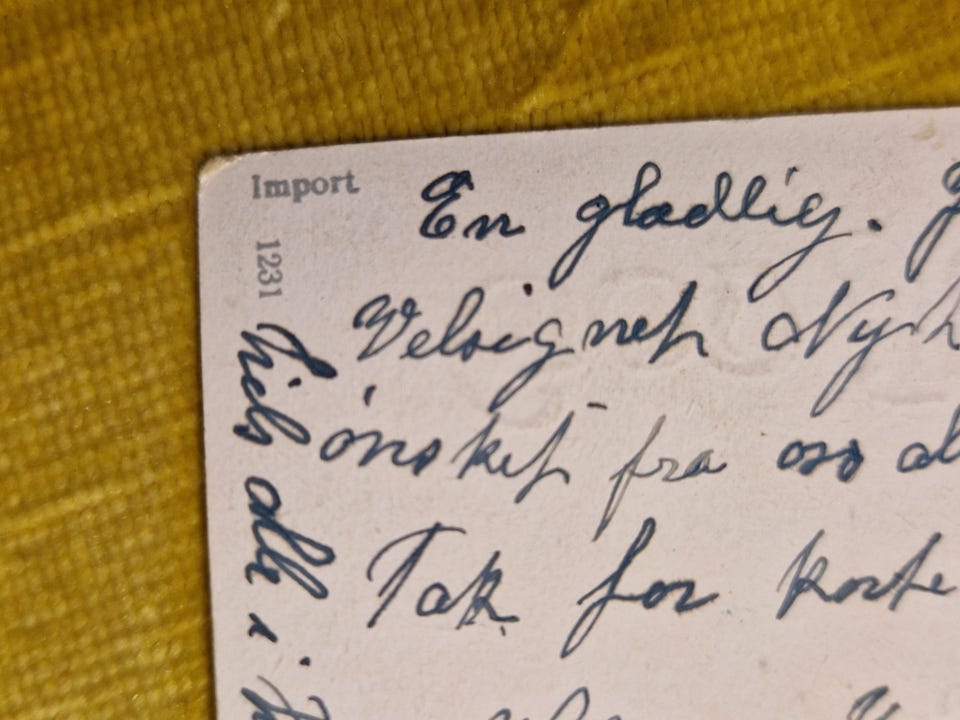 Import
1231
En gladlig.
Velsignet Nytt
ønsket fra oss al
Takk for korte
hils alle i